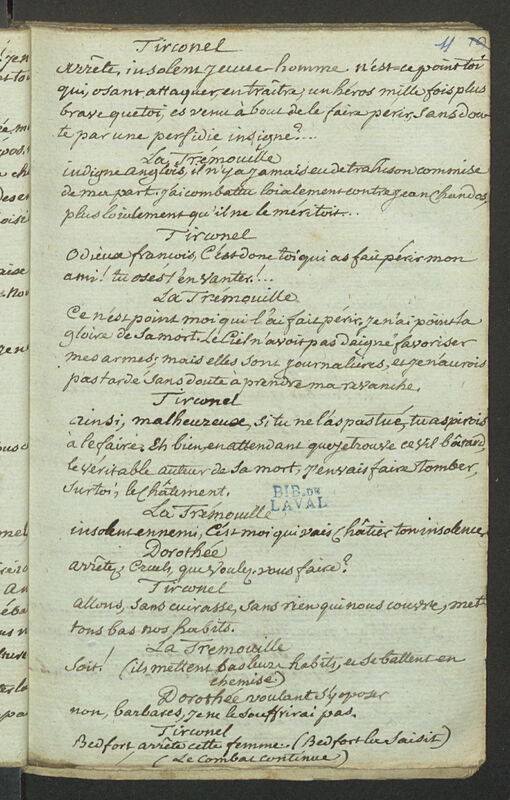 11 10
Tirconel
Arrête, insolent jeune homme n'est-ce point toi
qui, osant attaquer, en traître, un héros mille fois plus
brave que toi, es venu à bout de le faire périr, sans dou-
te par une perfidie insigne?...
La Trémouille
indigne Anglois, il n'y a jamais eu de trahison commise
de ma part. j'ai combattu loialement contre Jean Chandos,
plus loialement qu'il ne le méritoit...
Tirconel
Odieux francois, C'est donc toi qui as fait périr mon
ami! tu oses t'en vanter!...
La Trémouille
Ce n'est point moi qui l'ai fait périr, je n'ai point la
gloire de sa mort. Le Ciel n'avoit pas daigné favoriser
mes armes, mais elles sont journalières, et je n'aurois
pas tardé sans doute à prendre ma revanche.
Tirconel
ainsi, malheureux, si tu ne l'as pas tué, tu aspirois
à le faire. Eh bien, en attendant que je trouve ce vil bâtard,
le véritable auteur de sa mort, j'en vais faire tomber,
sur toi, le châtiment.
BIB. DE
LAVAL
La Trémouille
insolent ennemi, C'est moi qui vais châtier ton insolence.
Dorothée
arrêtez, Cruels, que voulez-vous faire?
Tirconel
allons, sans cuirasse, sans rien qui nous couvre, met-
tons bas nos habits.
La Trémouille
Soit! (ils mettent bas leurs habits, et se battent en
chemise)
Dorothée voulant s'y oposer
non, barbares, je ne le souffrirai pas.
Tirconel
Bedfort arrête cette femme. (Bedfort la saisit)
(Le combat continue)